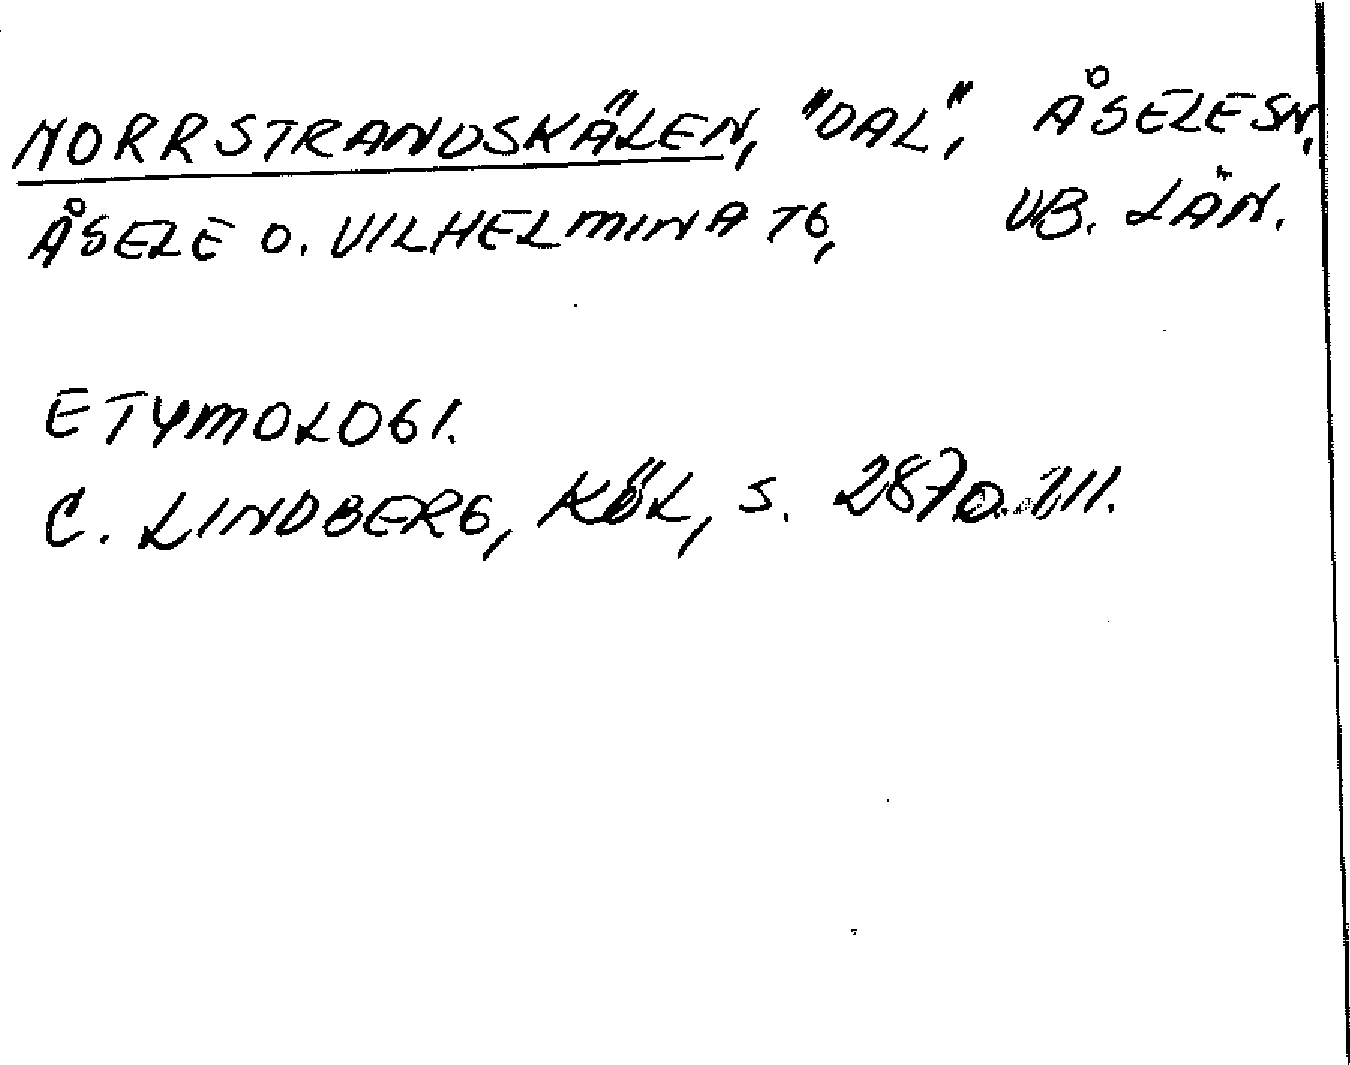 NORRSTRANDSKÄLEN, "DAL", ÅSELE SN,
ÅSELE O. VILHELMINA TG, VB. LÄN.
ETYMOLOGI.
C. LINDBERG, KÖL, S. 287 O.